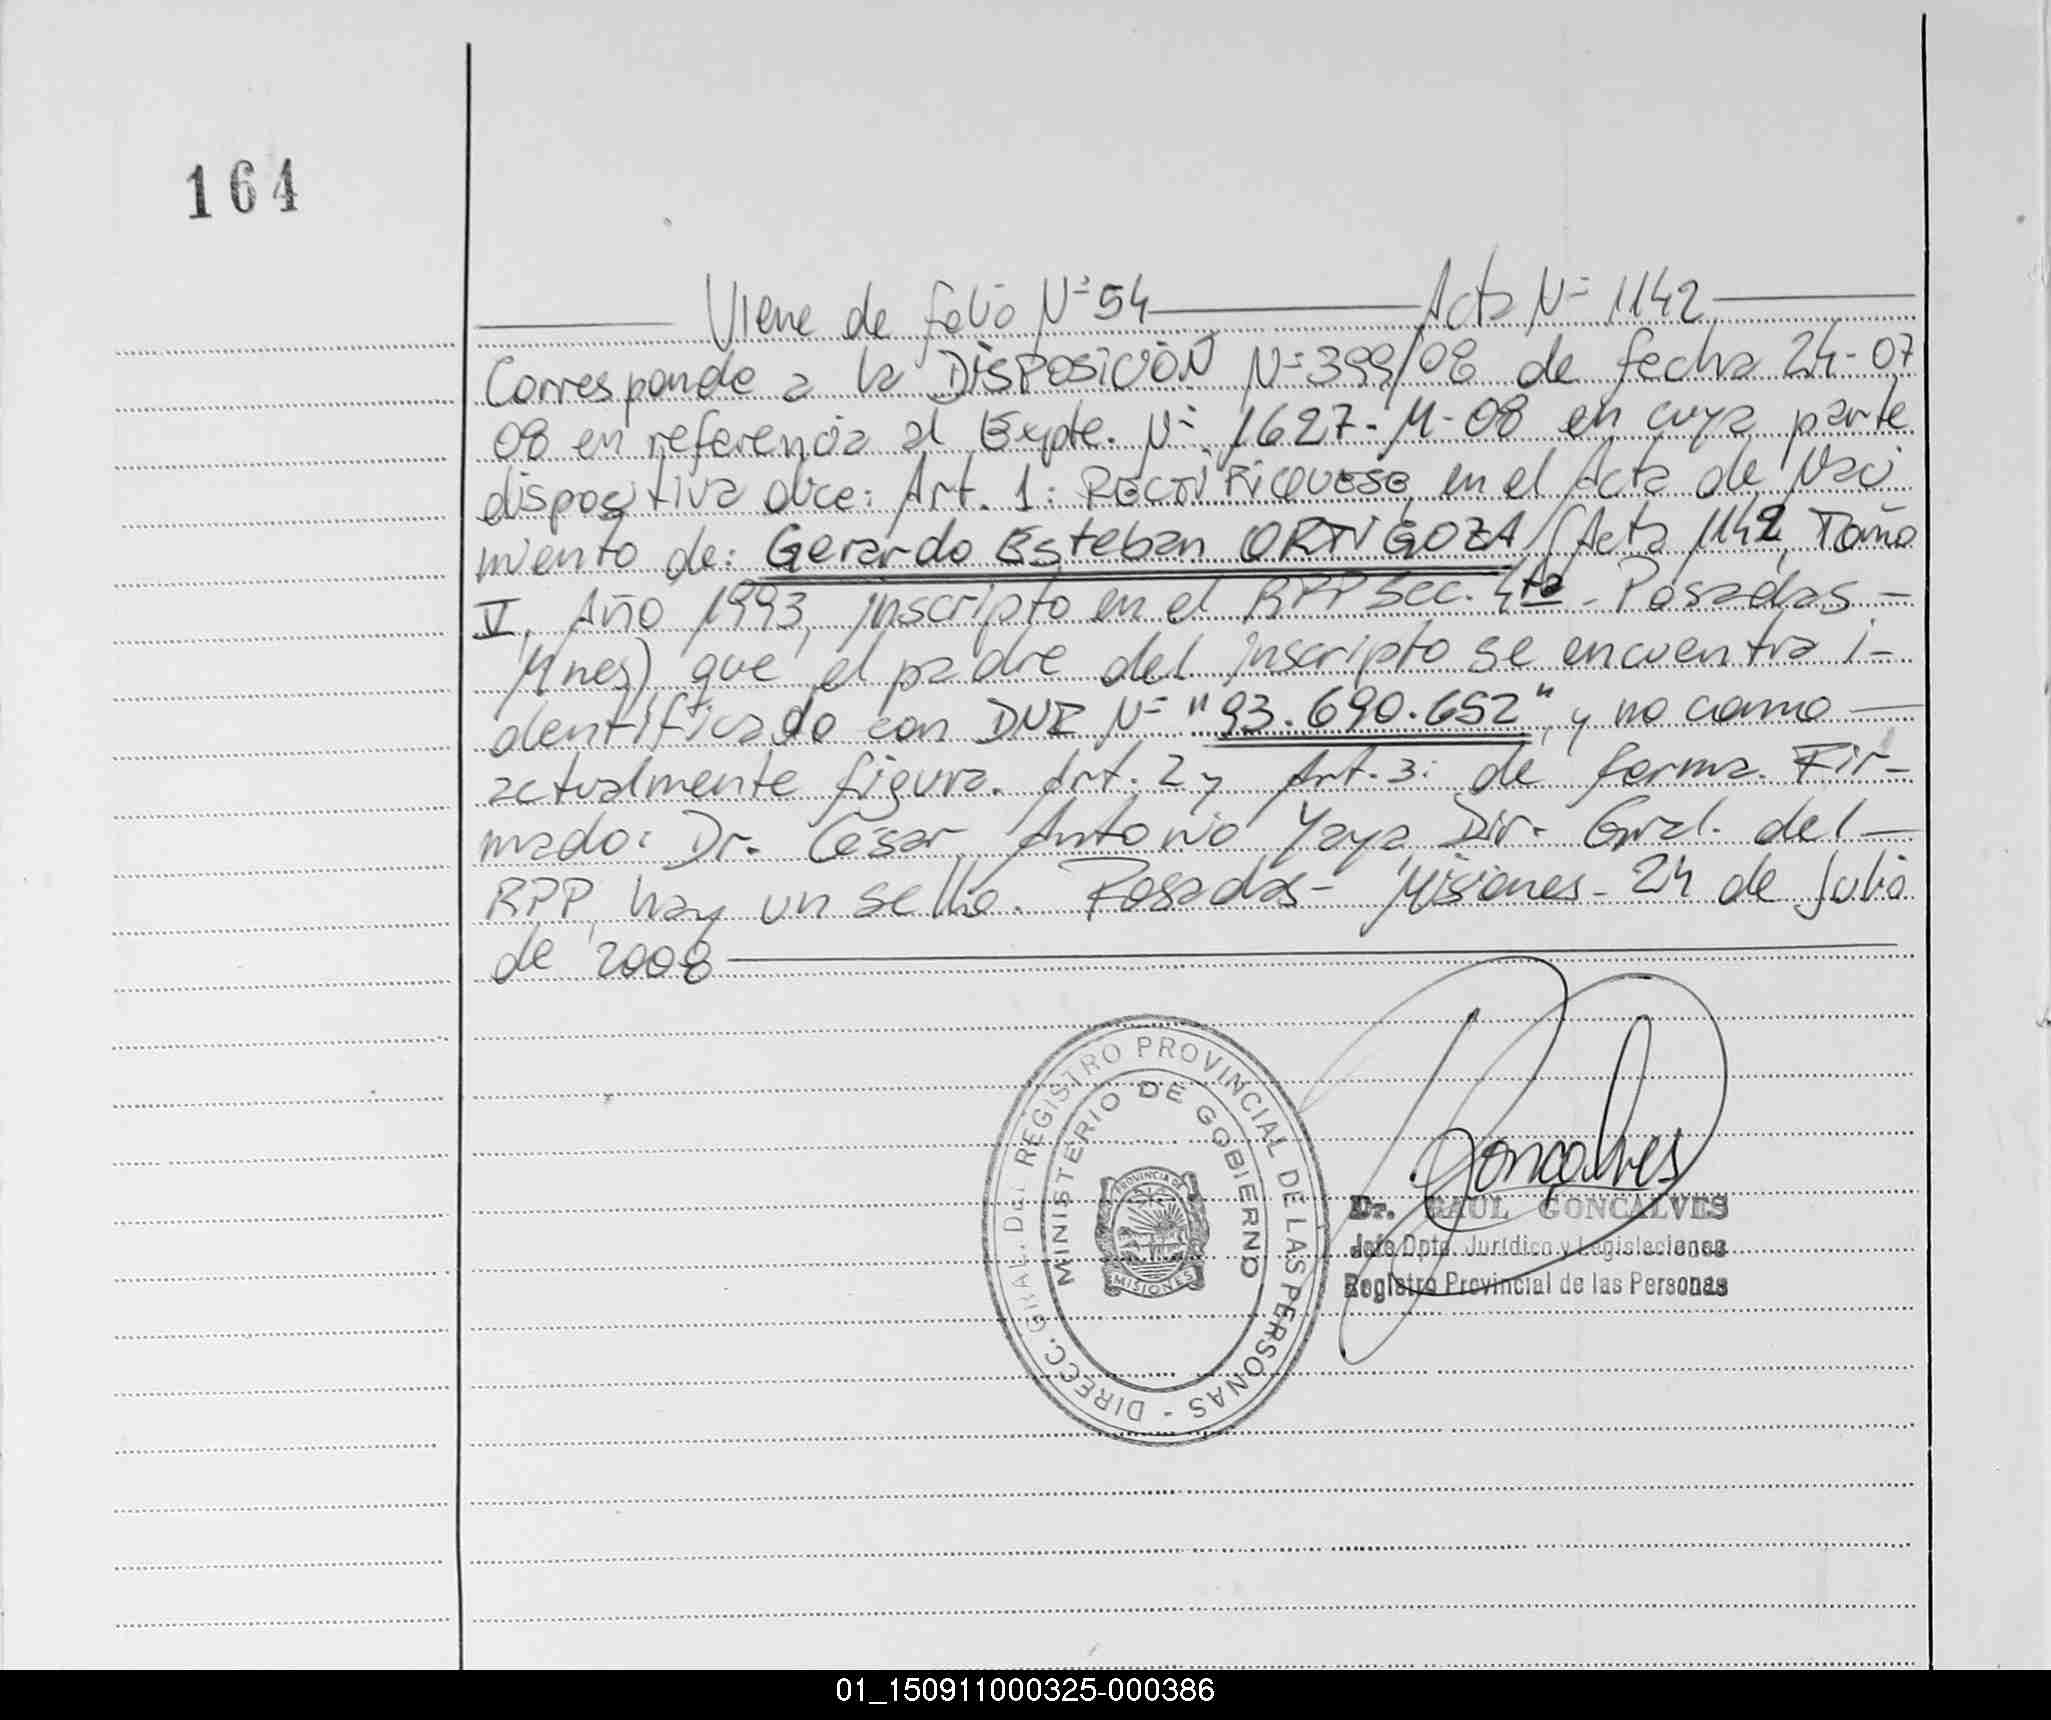 164
Viene de folio Nº 54 Acta Nº 1142
Corresponde a la DISPOSICIÓN Nº 399/08 de fecha 24-07
08 en referencia al Expte. Nº 1627-M-08 en cuya parte
dispositiva dice: Art. 1: RECTIFIQUESE, en el Acta de Naci
miento de: Gerardo Esteban ORTIGOZA (Acta 1142, Tomo
V, Año 1993, inscripto en el RPP Sec. 4ta - Posadas -
Mnes) que el padre del inscripto se encuentra i-
dentificado con DNI Nº "93.690.652", y no como
actualmente figura. Art. 2 y Art. 3: de forma. Fir-
mado: Dr. César Antonio Yaya, Dir. Gral. del
RPP, hay un sello. Posadas - Misiones - 24 de Julio
de 2008
DIRECC. GRAL. DEL REGISTRO PROVINCIAL DE LAS PERSONAS -
MINISTERIO DE GOBIERNO
PROVINCIA DE
MISIONES
Goncalves
Dr. RAUL GONCALVES
Jefe Dpto. Jurídico y Legislaciones
Registro Provincial de las Personas
01_150911000325-000386